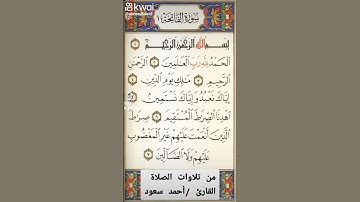 kwai
سُورَةُ الفَاتِحَةِ ١
بِسْمِ اللَّهِ الرَّحْمَٰنِ الرَّحِيمِ ١
الْحَمْدُ لِلَّهِ رَبِّ الْعَالَمِينَ ٢ الرَّحْمَٰنِ
الرَّحِيمِ ٣ مَالِكِ يَوْمِ الدِّينِ ٤
إِيَّاكَ نَعْبُدُ وَإِيَّاكَ نَسْتَعِينُ ٥
اهْدِنَا الصِّرَاطَ الْمُسْتَقِيمَ ٦ صِرَاطَ
الَّذِينَ أَنْعَمْتَ عَلَيْهِمْ غَيْرِ الْمَغْضُوبِ
عَلَيْهِمْ وَلَا الضَّالِّينَ ٧
من تلاوات الصلاة
القارئ /أحمد سعود